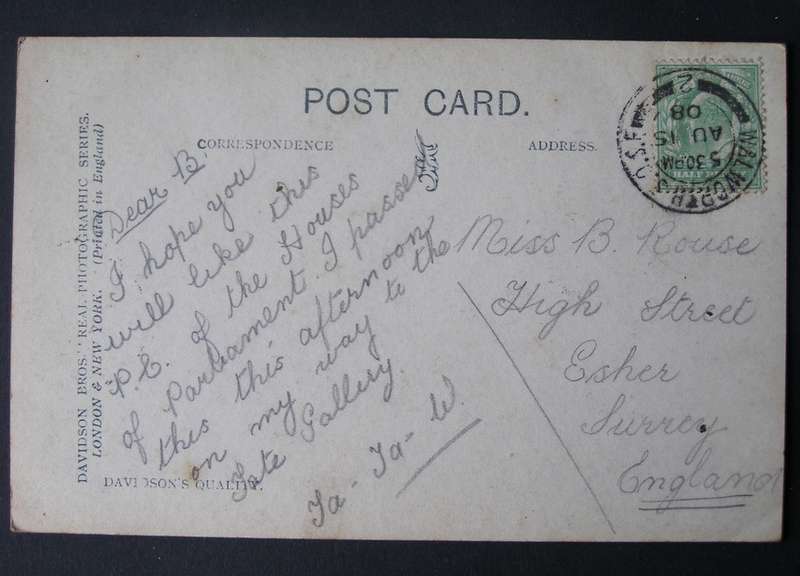 POST CARD.
CORRESPONDENCE
ADDRESS.
DAVIDSON BROS.' REAL PHOTOGRAPHIC SERIES.
LONDON & NEW YORK. (Printed in England)
Dear B.
I hope you
will like this
P.C. of the Houses
of Parliament. I passed
this this afternoon
on my way to the
Tate Gallery.
Ta-Ta- W.
Miss B. Rouse
High Street
Esher
Surrey
England
DAVIDSON'S QUALITY.
WALWORTH S.E.
5 30 PM
AU 5
08
2
HALF